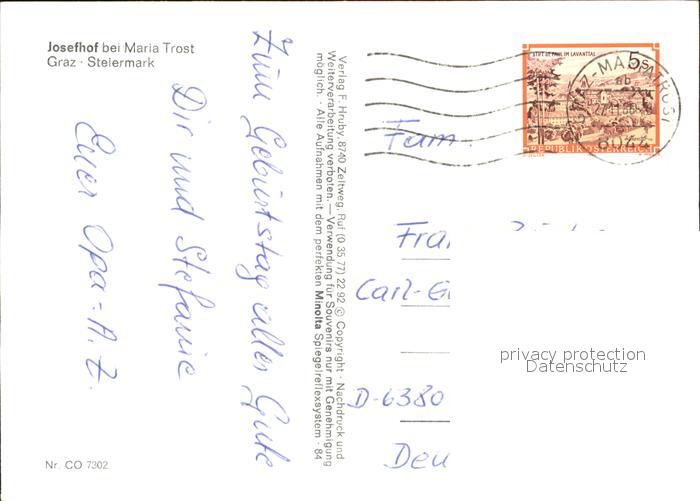 Josefhof bei Maria Trost
Graz · Steiermark
Zum Geburtstag alles Gute
Dir und Stefanie
Euer Opa - A. Z.
Nr. CO 7302
Verlag F. Hruby, 8740 Zeltweg, Ruf (0 35 77) 22 92 © Copyright · Nachdruck und
Weiterverarbeitung verboten. — Verwendung für Souvenirs nur mit Genehmigung
möglich. · Alle Aufnahmen mit dem perfekten Minolta Spiegelreflexsystem · 84
STIFT ST. PAUL IM LAVANTTAL
5s
REPUBLIK ÖSTERREICH
GRAZ-MARIATROST
8044
Fam.
Fra
Carl-G
D-6380
Deu
privacy protection
Datenschutz